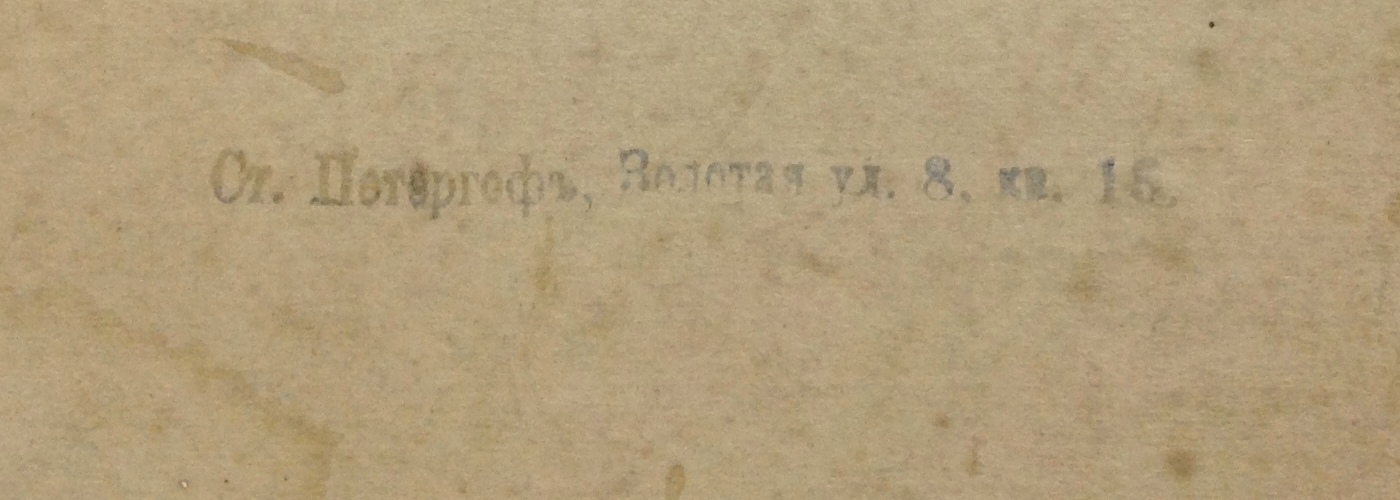 Ст. Петергофъ, Золотая ул. 8. кв. 15.